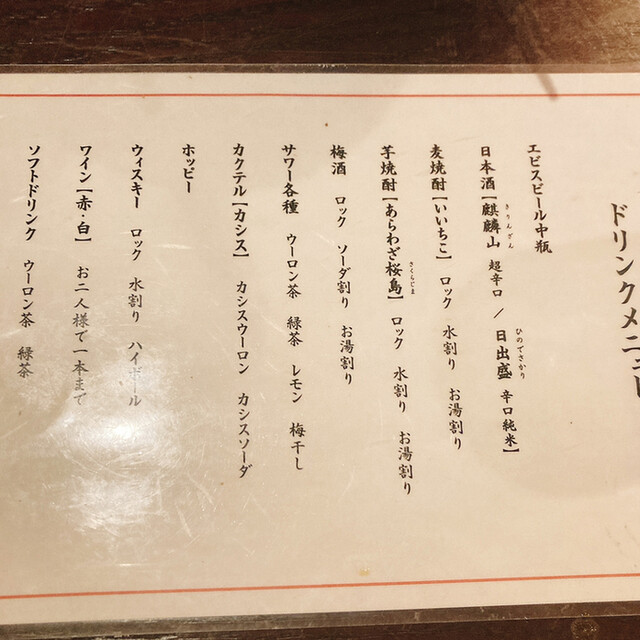 ドリンクメニュー
エビスビール中瓶
日本酒【麒麟山 超辛口 / 日出盛 辛口純米】
きりんざん ひのでさかり
麦焼酎【いいちこ】 ロック 水割り お湯割り
芋焼酎【あらわざ桜島】 ロック 水割り お湯割り
さくらじま
梅酒 ロック ソーダ割り お湯割り
サワー各種 ウーロン茶 緑茶 レモン 梅干し
カクテル【カシス】 カシスウーロン カシスソーダ
ホッピー
ウィスキー ロック 水割り ハイボール
ワイン【赤・白】 お二人様で一本まで
ソフトドリンク ウーロン茶 緑茶